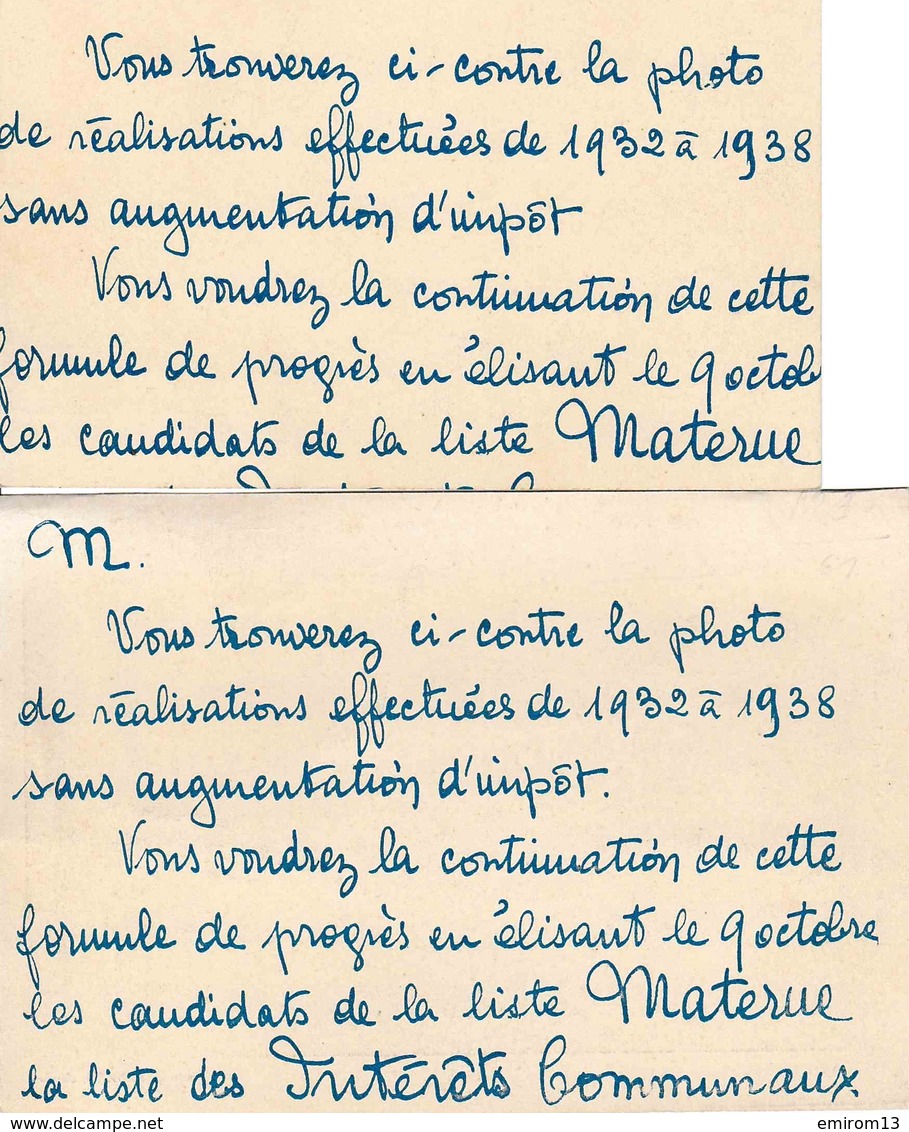 Vous trouverez ci-contre la photo
de réalisations effectuées de 1932 à 1938
sans augmentation d'impôt
Vous voudrez la continuation de cette
formule de progrès en élisant le 9 octob
les candidats de la liste Materne
M.
Vous trouverez ci-contre la photo
de réalisations effectuées de 1932 à 1938
sans augmentation d'impôt.
Vous voudrez la continuation de cette
formule de progrès en élisant le 9 octobre
les candidats de la liste Materne
la liste des Intérêts Communaux
www.delcampe.net
emirom13